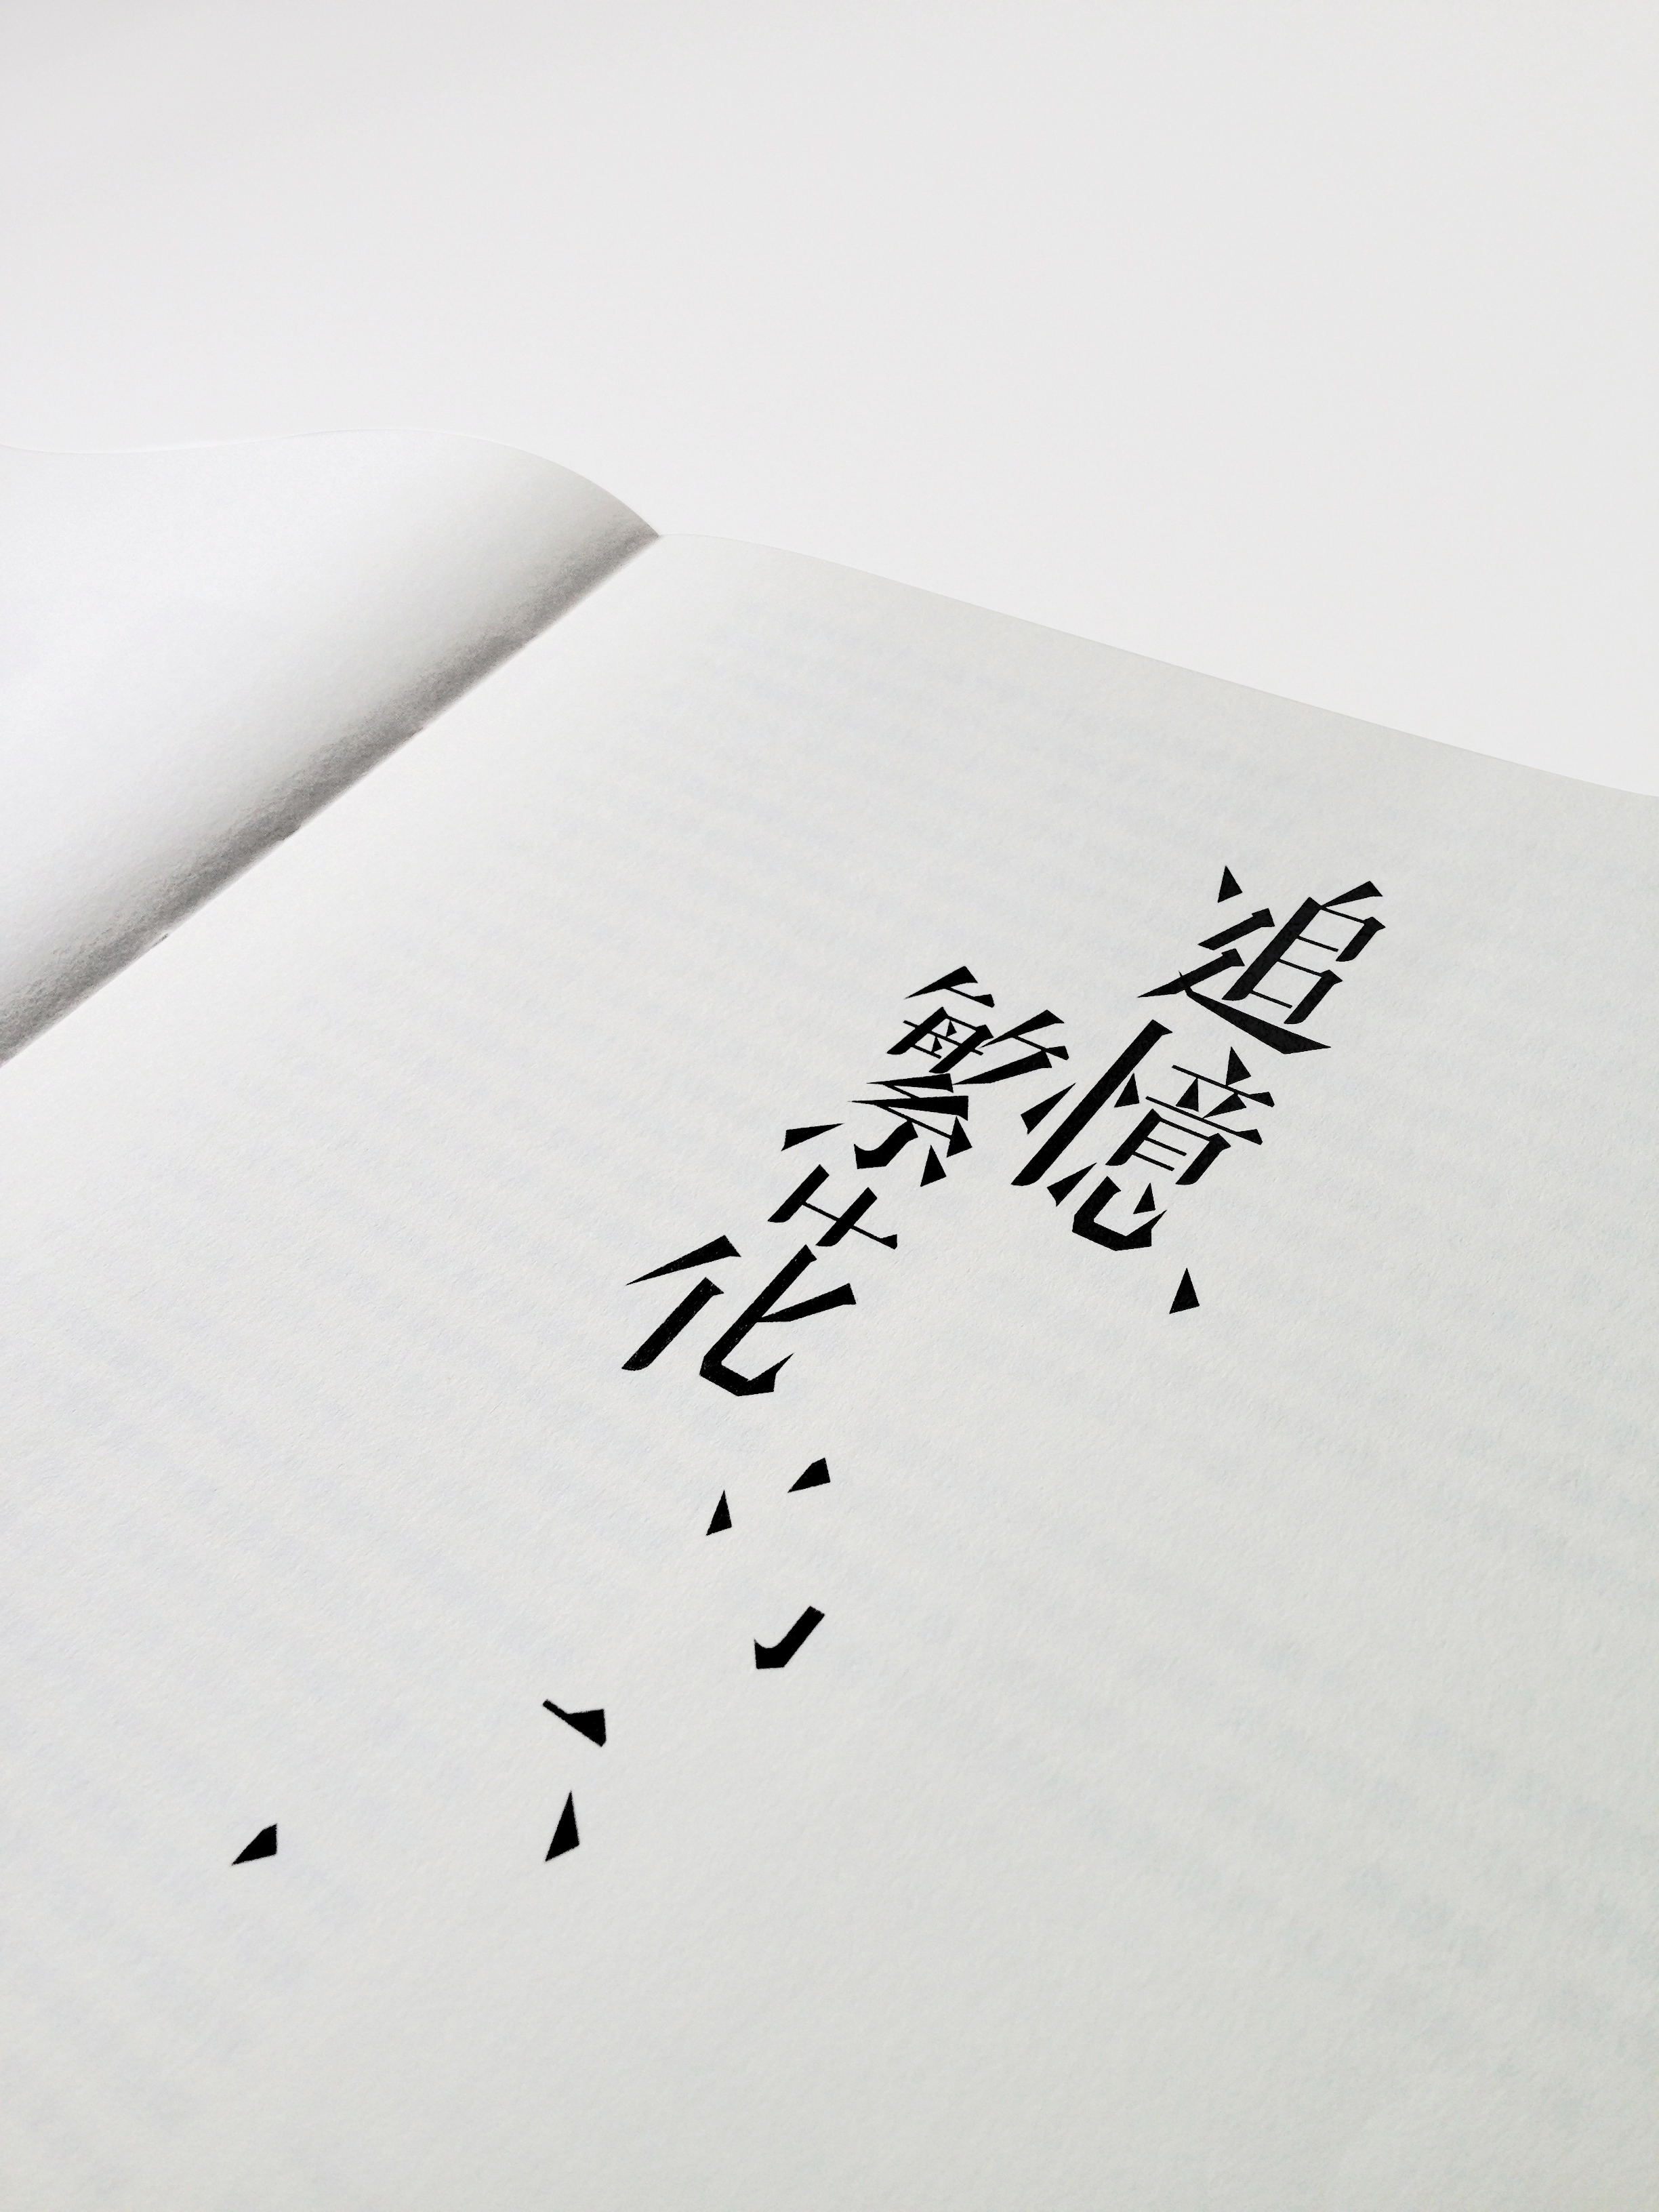 追憶
繁花